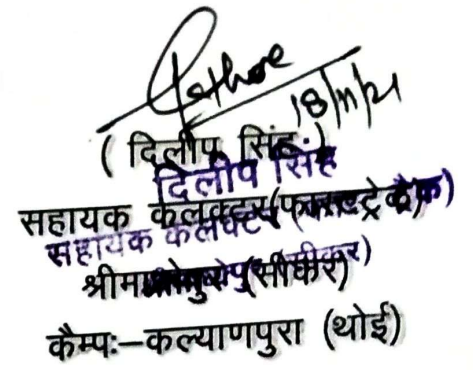 Rathore
18/11/21
( दिलीप सिंह )
दिलीप सिंह
सहायक कलक्टर(फास्ट्रेक)
सहायक कलक्टर
श्रीमाधोपुर (सीकर)
कैम्पः–कल्याणपुरा (थोई)